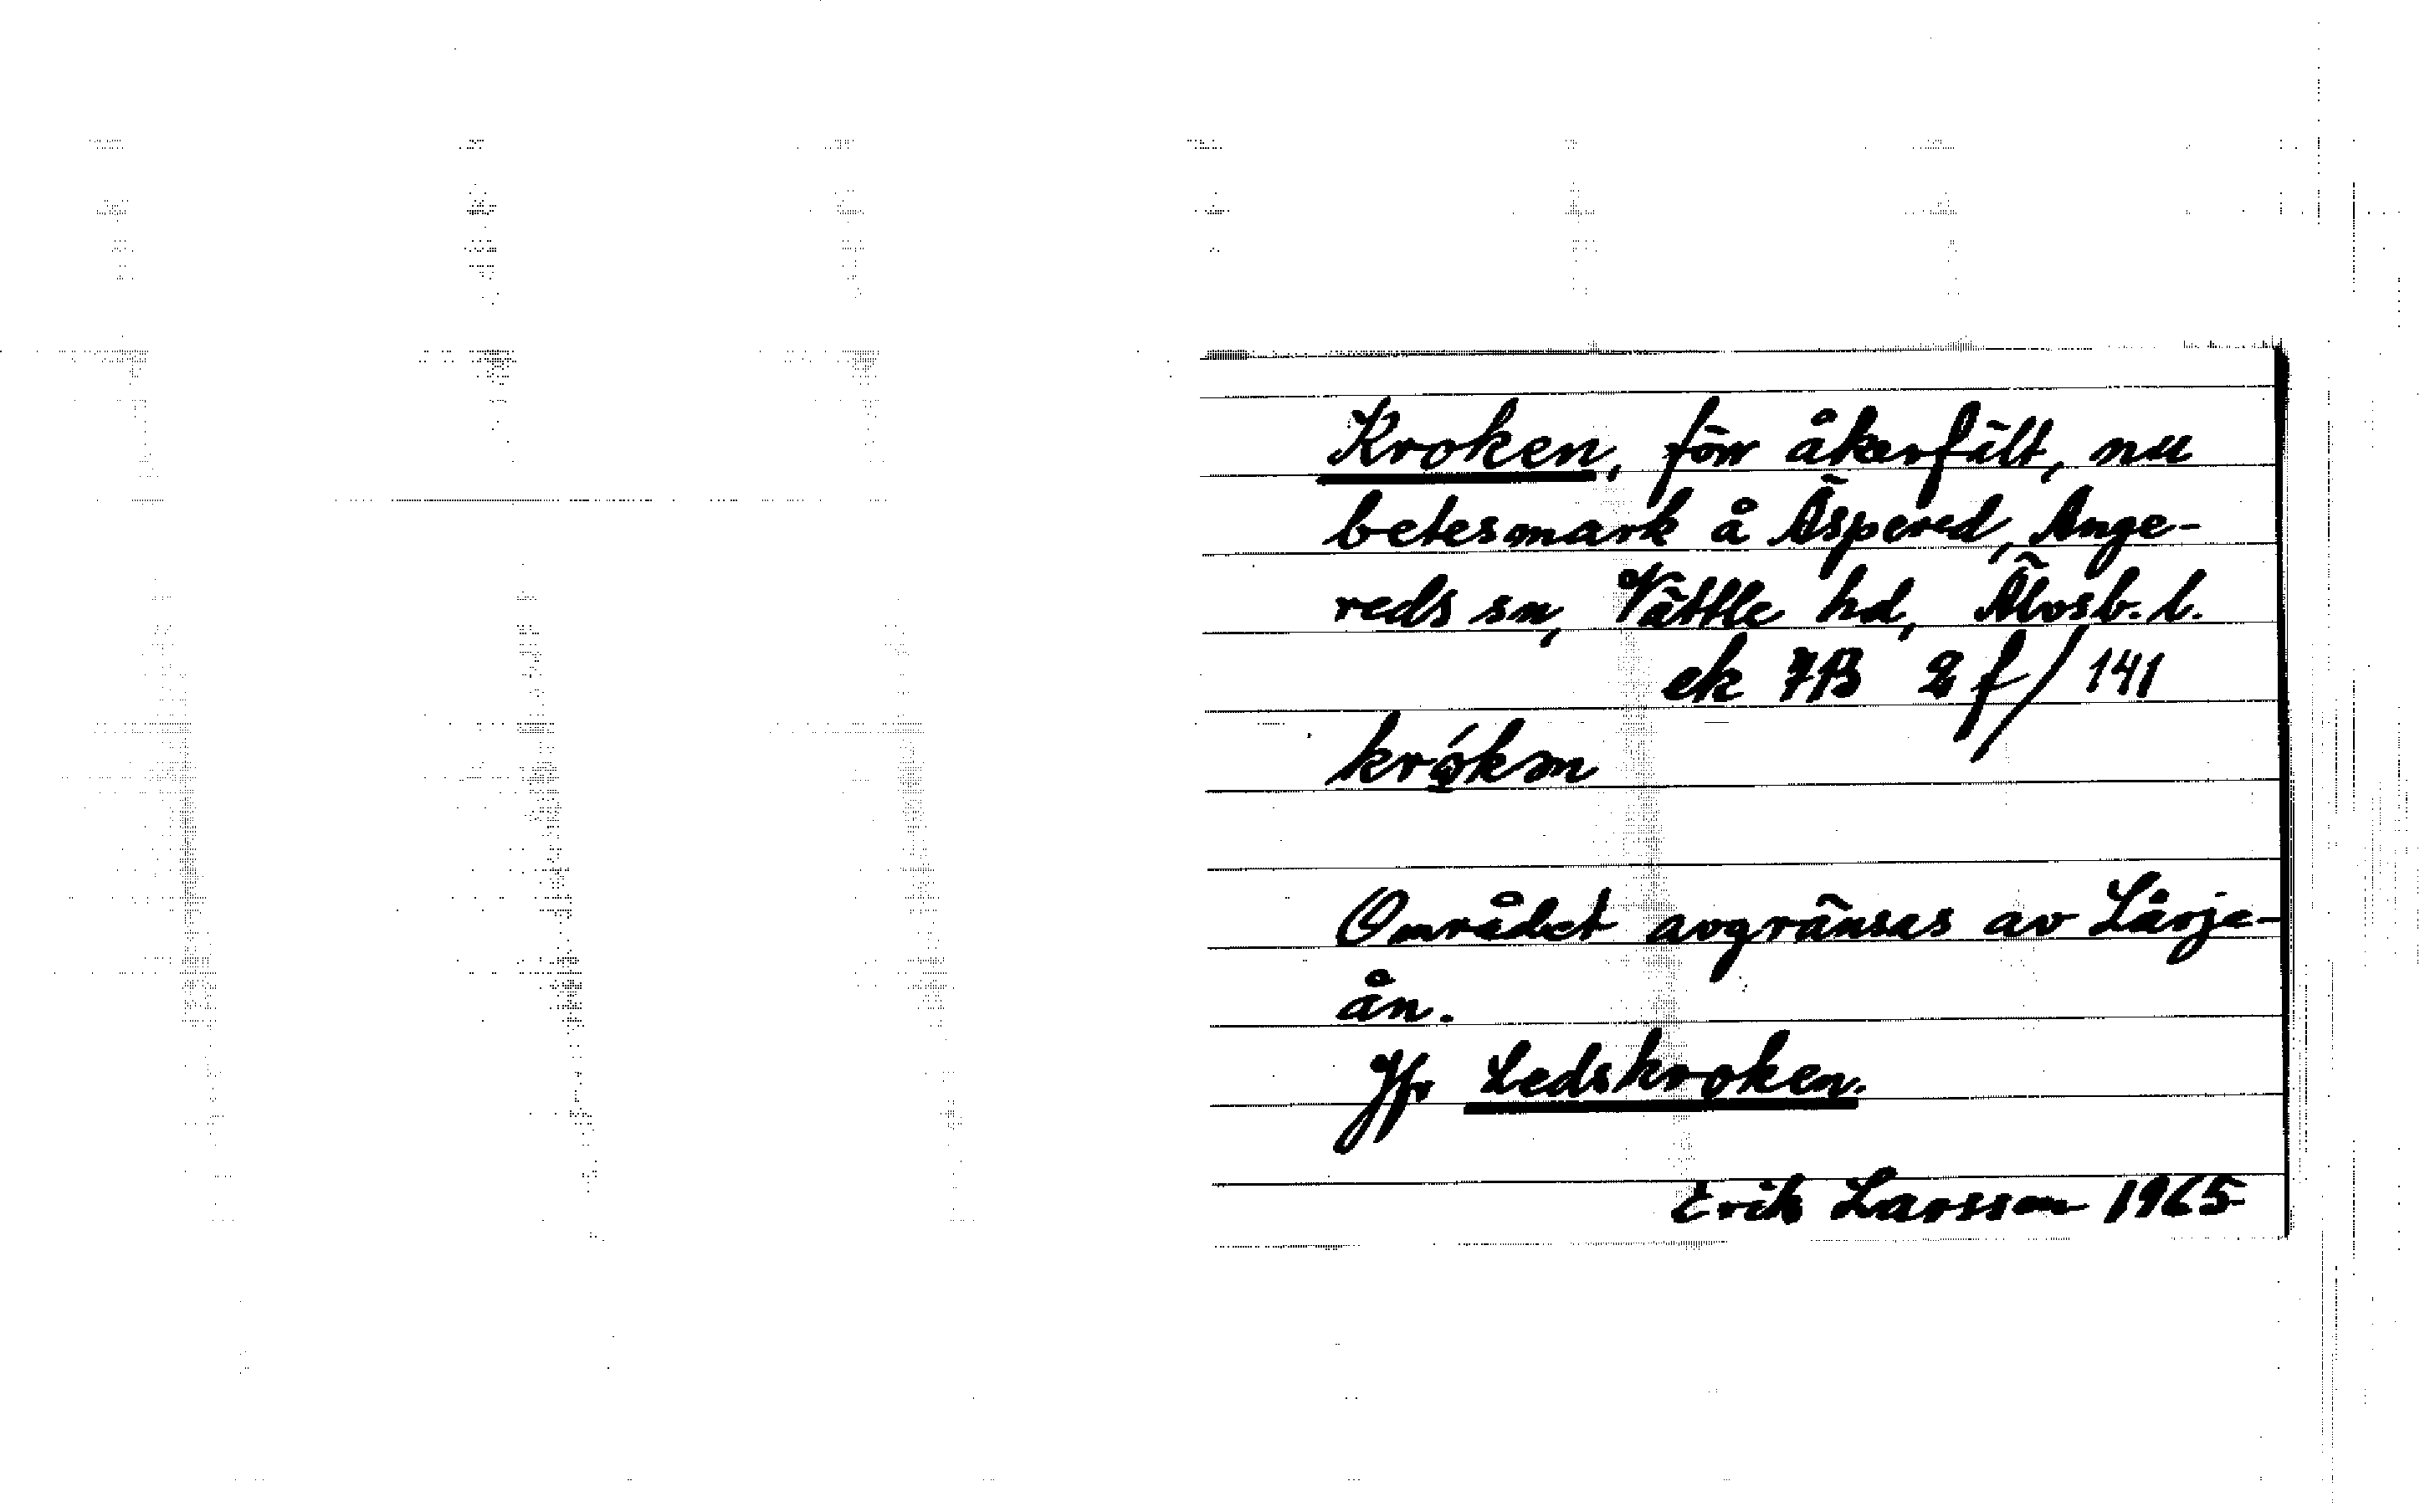 Kroken, förr åkerfält, nu
betesmark å Äspered, Ange-
reds sn, Vättle hd, Älvsb. l.
ek 7B 2f/141
krókm
Området avgränsas av Lärje-
ån.
Jfr Ledskroken.
Erik Larsson 1965